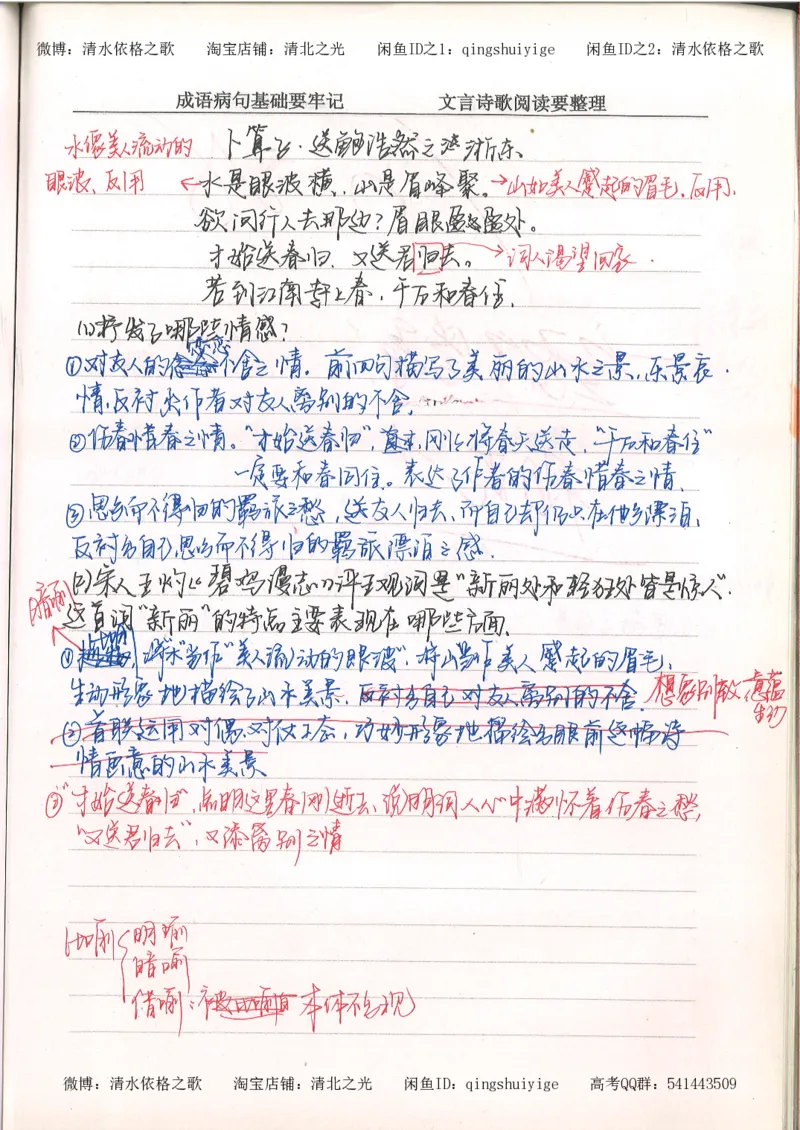 微博：清水依格之歌 淘宝店铺：清北之光 闲鱼ID之1：qingshuiyige 闲鱼ID之2：清水依格之歌
成语病句基础要牢记 文言诗歌阅读要整理
水像美人流动的 卜算子·送鲍浩然之浙东
眼波、反用 ←水是眼波横，山是眉峰聚。→山如美人蹙起的眉毛，反用.
欲问行人去那边？眉眼盈盈处。
才始送春归，又送君归去。→词人渴望回家.
若到江南赶上春，千万和春住.
(1)抒发了哪些情感？
依恋
①对友人的不舍之情。前四句描写了美丽的山水之景，乐景哀
情，反衬出作者对友人离别的不舍.
②伤春惜春之情。"才始送春归"，刚刚将春天送走，"千万和春住"
一定要和春同住。表达了作者的伤春惜春之情.
③思乡而不得归的羁旅之愁，送友人归去，而自己却仍在他乡漂泊，
反衬出自己思乡而不得归的羁旅漂泊之感.
(2)宋人王灼《碧鸡漫志》评王观词是"新丽处和轻狂处皆足惊人".
暗喻
这首词"新丽"的特点主要表现在哪些方面.
① 比喻 将"水"当作"美人流动的眼波"，将山当作美人蹙起的眉毛，
生动形象地描绘了山水美景，反衬出自己对友人离别的不舍. 想象别致 意蕴
生动
②首联运用对偶，对仗工态，巧妙形象地描绘出眼前这幅诗
情画意的山水美景
③"才始送春归"，点明这里春刚逝去，说明词人心中满怀着伤春之愁，
"又送君归去"，又添离别之情
比喻 明喻
暗喻
借喻：本体不出现
微博：清水依格之歌 淘宝店铺：清北之光 闲鱼ID：qingshuiyige 高考QQ群：541443509